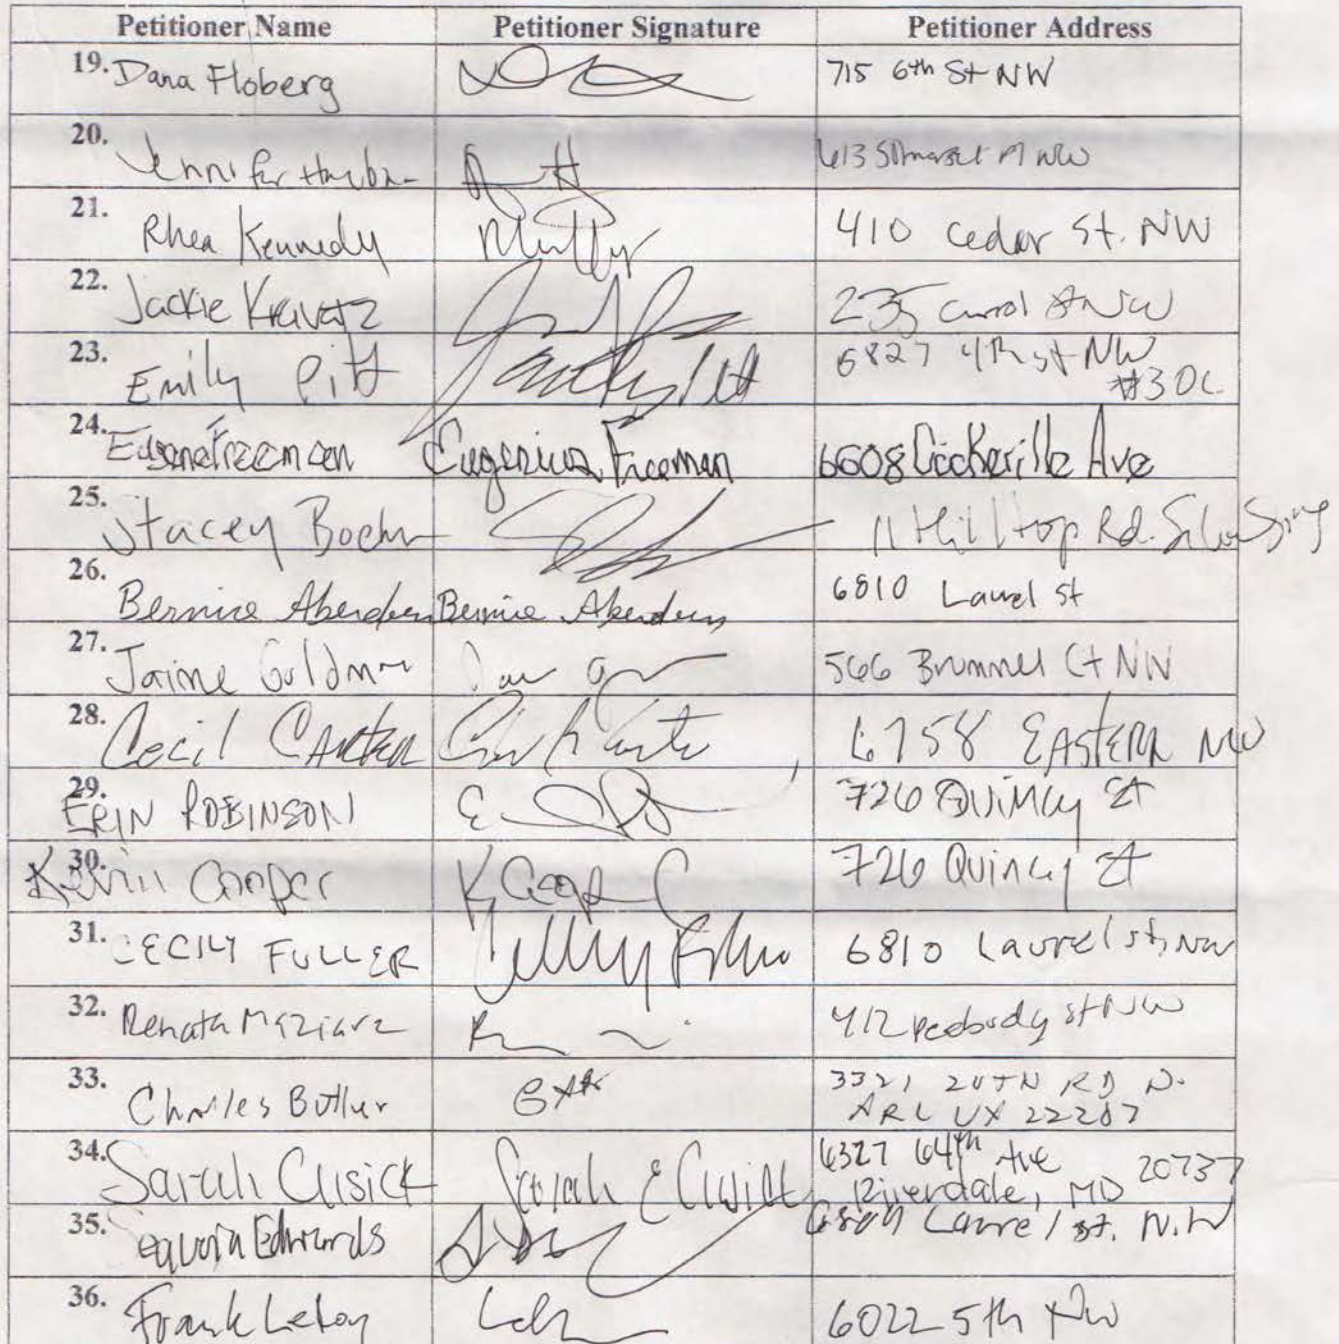 Petitioner Name Petitioner Signature Petitioner Address
19. Dana Floberg 715 6th St NW
20. Jennifer NW
21. Rhea Kennedy 410 Cedar St. NW
22. Jackie Kravetz 235 NW
23. Emily Pitt 6827 4th St NW
#30C
24. Eugene Freeman Eugenius Freeman 6608 Cockerille Ave
25. Stacey Boehm 11 Hilltop Rd. Silver Spring
26. Bernice Aberdeen Bernice Aberdeen 6810 Laurel St
27. Jaime Goldman 566 Brummel Ct NW
28. Cecil CARTER 6758 EASTERN NW
29. ERIN ROBINSON 726 QUINCY ST
30. Kevin Cooper 726 Quincy St
31. CECILY FULLER 6810 Laurel St, NW
32. Renata Maziarz 412 Peebody St NW
33. Charles Butler 3321 20TH RD N.
ARL VA 22207
34. Sarah Cusick Sarah E Cusick 6327 64th Ave
Riverdale, MD 20737
35. Edwards Laurel St. N.W
36. Frank 6022 5th NW